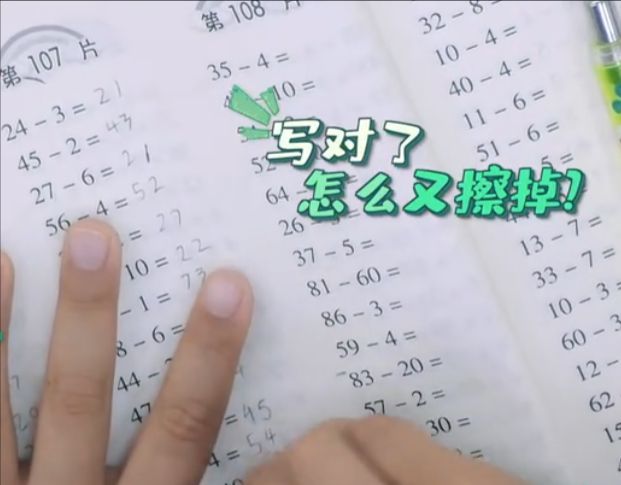 第 107 片
24 - 3 = 21
45 - 2 = 43
27 - 6 = 21
56 - 4 = 52
= 27
10 = 22
- 1 = 73
8 - 6 =
44 - 2
47
= 45
4 = 54
第 108 片
35 - 4 =
10 =
52
64
26 - 3 =
37 - 5 =
81 - 60 =
86 - 3 =
59 - 4 =
83 - 20 =
57 - 2 =
30 =
32 - 8 =
10 - 4 =
40 - 4 =
11 - 6 =
51 - 6 =
5 =
13 - 7 =
33 - 7 =
10 - 3 =
60 - 3
12 -
62
写对了
怎么又擦掉!